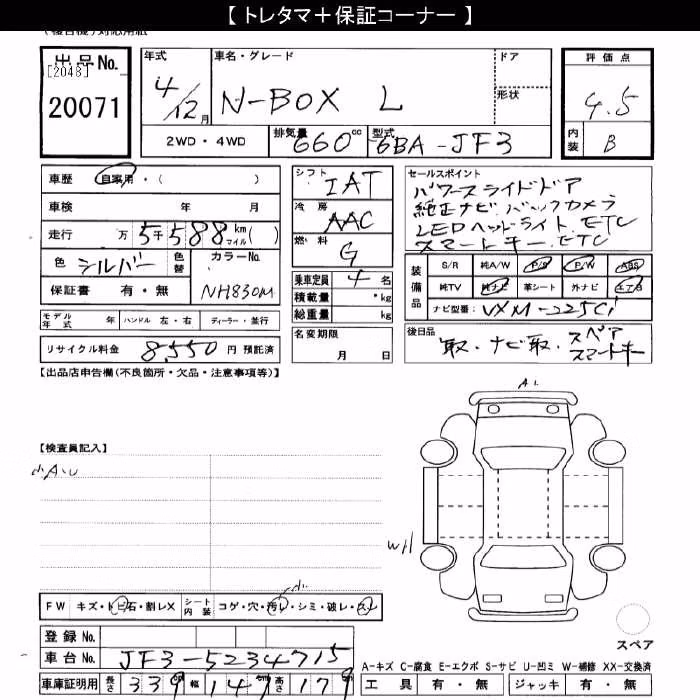 【 トレタマ＋保証コーナー 】
出品No.
[2048]
20071
年式
4/12月
車名・グレード
N-BOX L
ドア
形状
評価点
4.5
内装
B
2WD・4WD
排気量
660cc
型式
6BA-JF3
車歴
自家用・( )
車検
年 月
走行
万 5千588 km マイル ( )
色
シルバー
色替
カラーNo.
NH830M
保証書 有・無
シフト
IAT
冷房
AAC
燃料
G
乗車定員 4名
積載量 kg
総重量 kg
セールスポイント
パワースライドドア
純正ナビ.バックカメラ
LEDヘッドライト.ETC
スマートキー.ETC
装備品
S/R 純A/W P/S P/W ABS
純TV 純ナビ 革シート 外ナビ エアB
ナビ型番: VXM-225Ci
モデル年式 年 ハンドル 左・右 ディーラー・並行
リサイクル料金 8,550 円 預託済
名変期限
月 日
後日品
取.ナビ取.スペア
スマートキー
【出品店申告欄(不良箇所・欠品・注意事項等)】
A1
【検査員記入】
小A.U
W1
FW キズ・トビ石・割レX
シート内装 コゲ・穴・汚レ・シミ・破レ・スレ
小
スペア
登録No.
車台No. JF3-5234715
車庫証明用 長さ 339 幅 147 高さ 179
A-キズ C-腐食 E-エクボ S-サビ U-凹ミ W-補修 XX-交換済
工具 有・無 ジャッキ 有・無